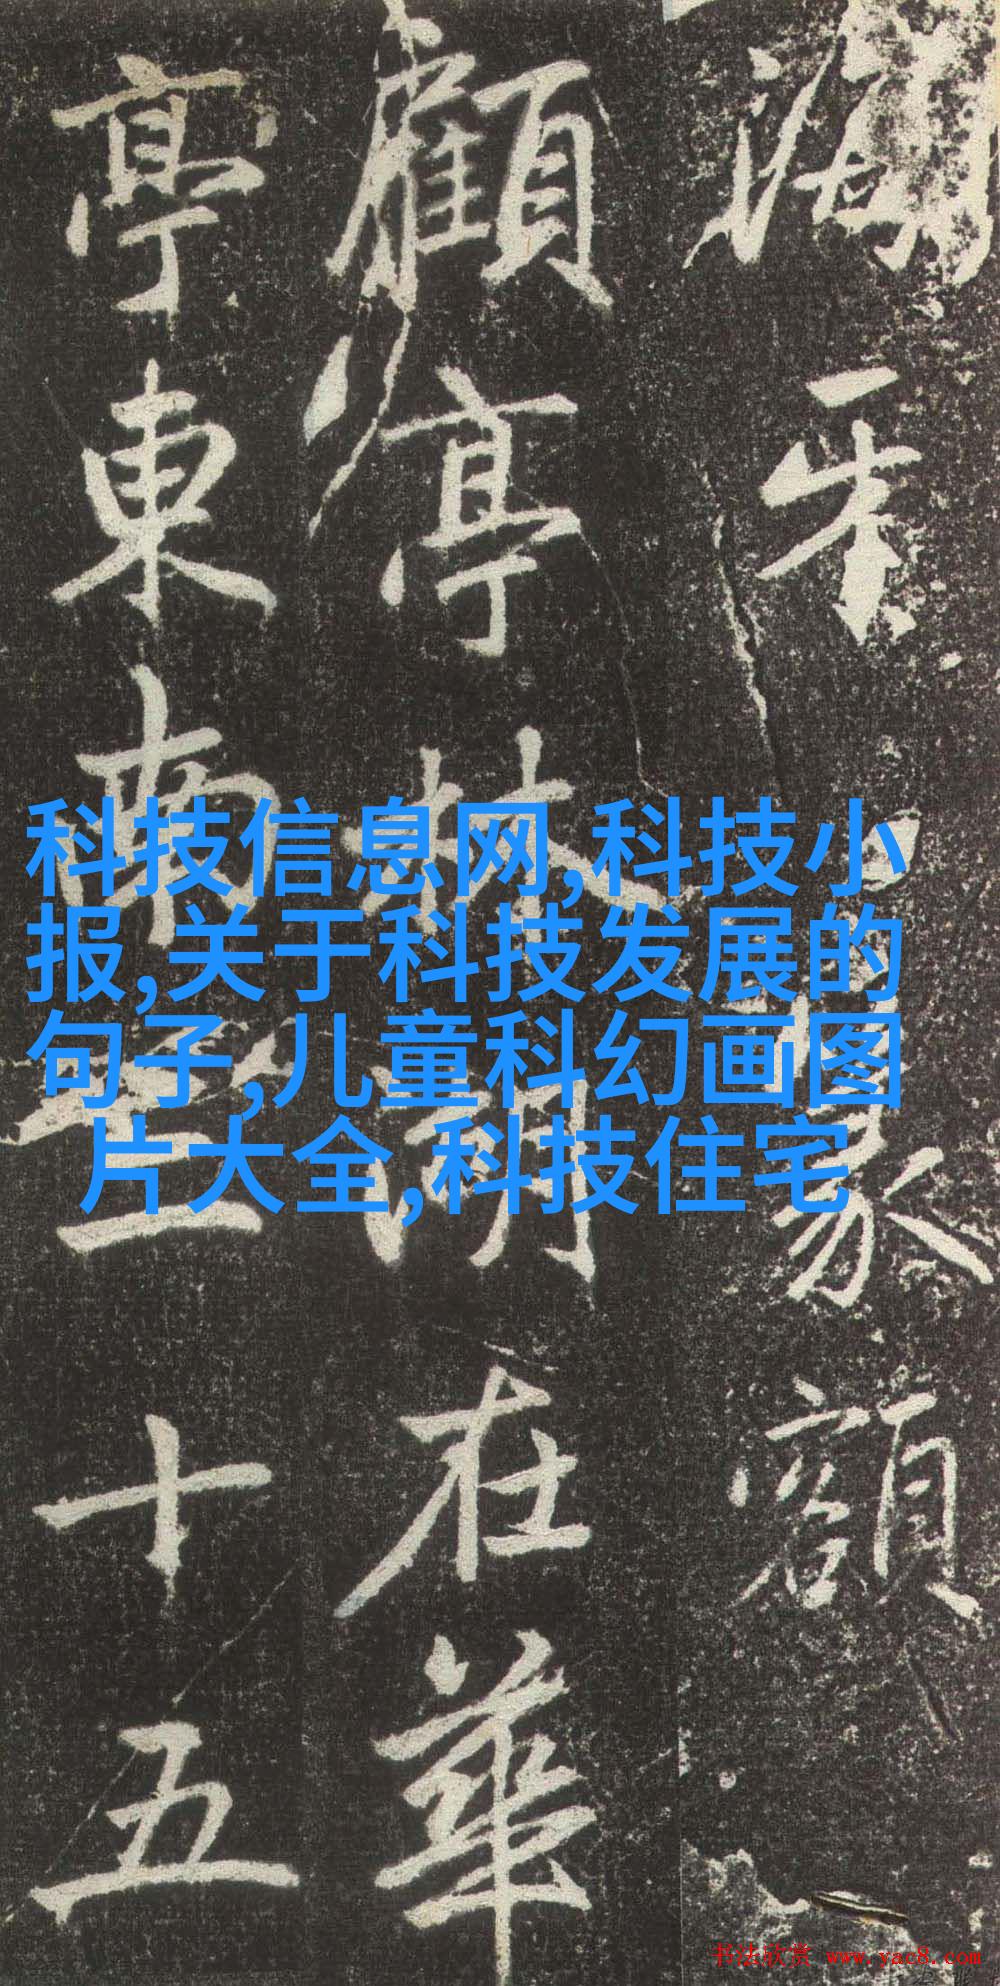 海牙篆額
顧亭林湖在華
亭東南三十五
科技信息网,科技小
报,关于科技发展的
句子,儿童科幻画图
片大全,科技住宅
书法欣赏 www.yac8.com